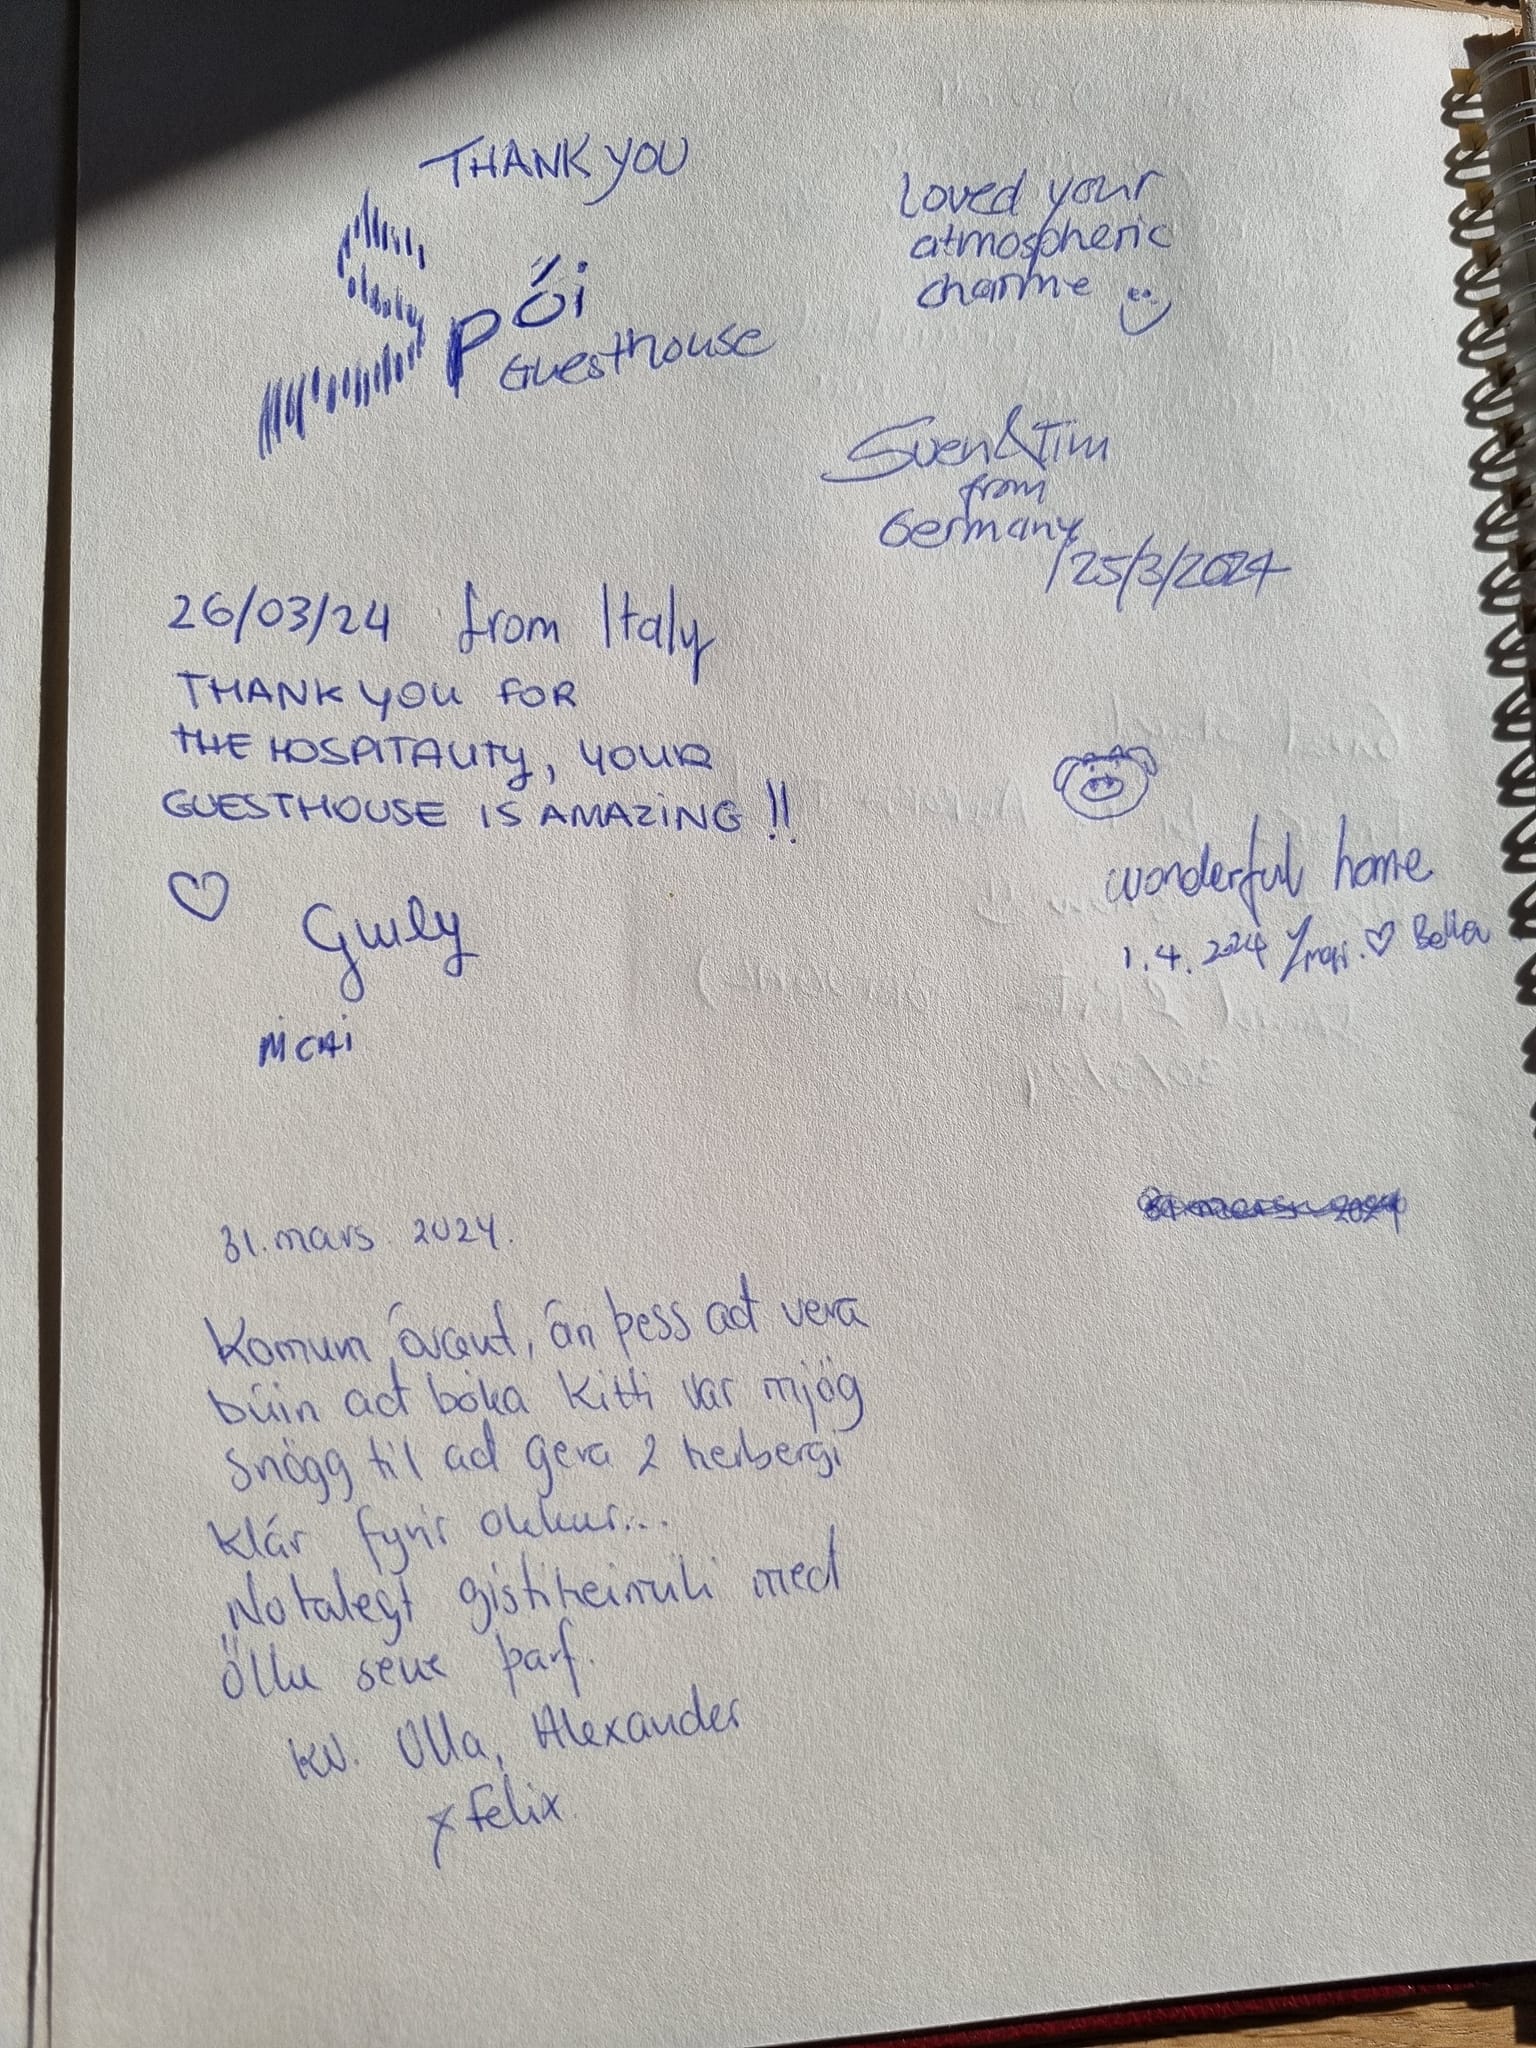 THANK YOU
Spói
Guesthouse
Loved your
atmospheric
charme
Sven & Tim
from
Germany
/25/3/2024
26/03/24 from Italy
THANK YOU FOR
THE HOSPITALITY, YOUR
GUESTHOUSE IS AMAZING !!
♡
Giuly
wonderful home
1.4.2024 ♡ Bella
31. mars. 2024.
Komum óvænt, án þess að vera
búin að bóka Kitti var mjög
snögg til að gera 2 herbergi
klár fyrir okkur...
Notalegt gistiheimili með
öllu sem þarf.
kv. Olla, Alexander
+ Felix.